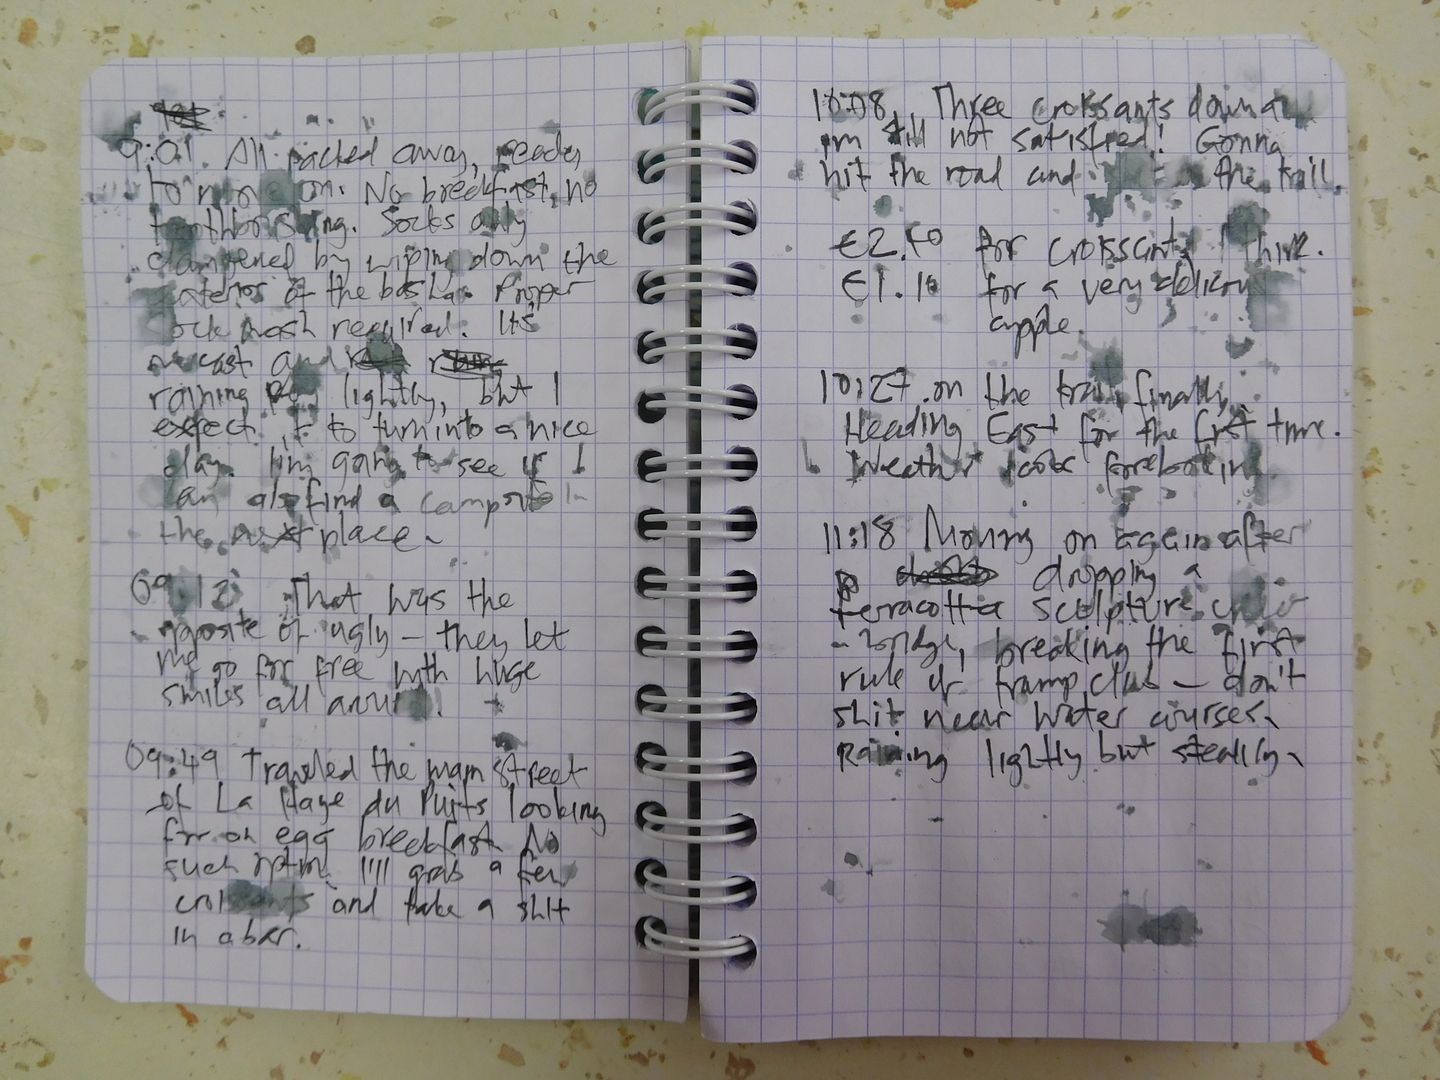 9:01. All packed away, ready
to move on. No breakfast, no
toothbrushing. Socks only
dampened by wiping down the
exterior of the basha. Proper
sock wash required. It's
overcast and
raining lightly, but I
expect it to turn into a nice
day. I'm going to see if I
can also find a campsite in
the next place.
09:12 That was the
opposite of ugly – they let
me go for free with huge
smiles all around!
09:49 Traveled the main street
of La Haye du Puits looking
for an egg breakfast. No
such option. I'll grab a few
croissants and take a shit
in a bar.
10:08. Three croissants down &
im still not satisfied! Gonna
hit the road and the trail.
€2.50 for croissants I think.
€1.10 for a very delicious
apple.
10:27. on the trail, finally,
Heading East for the first time.
Weather looks foreboding
11:18 Moving on again after
dropping a
terracotta sculpture under
a bridge, breaking the first
rule of tramp club – don't
shit near water courses.
Raining lightly but steadily.